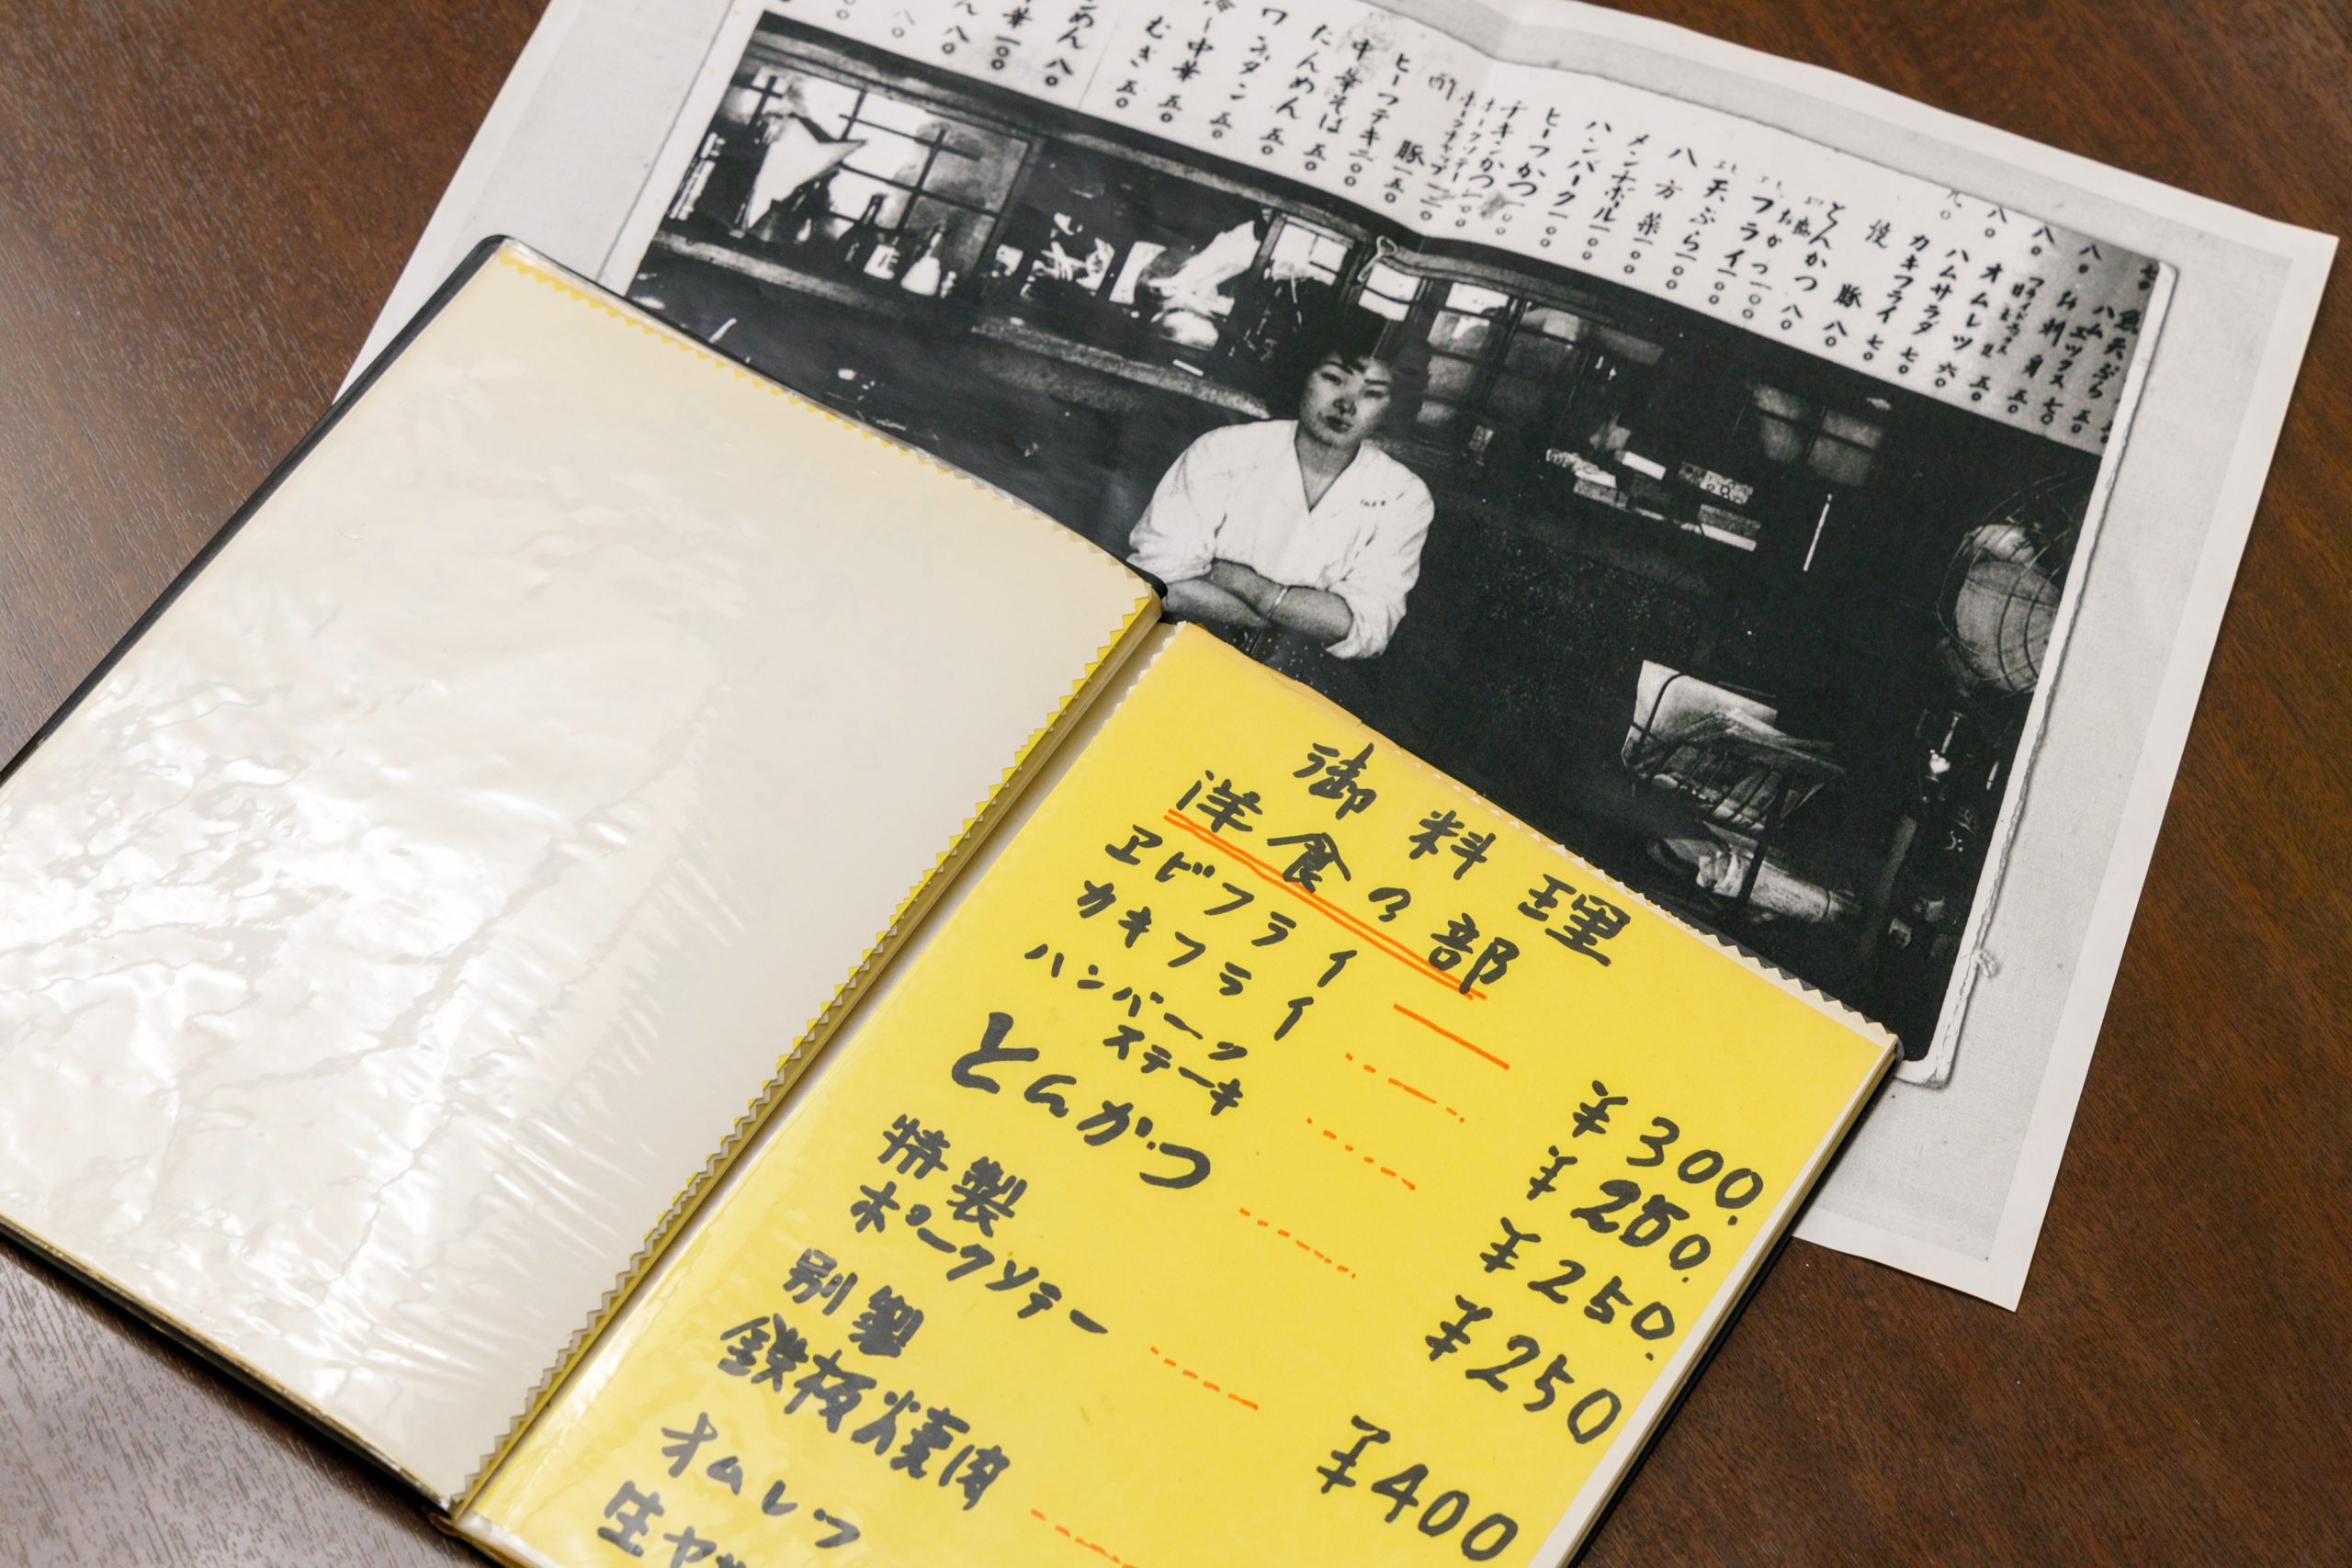 めん 八〇
むぎ 五〇
中華 五〇
ワンタン 五〇
たんめん 五〇
中華そば 五〇
ビーフテキ 二〇〇
豚 一五〇
チキンかつ 一〇〇
ビーフかつ 一〇〇
ハンバーク 一〇〇
メンチボール 一〇〇
八方菜 一〇〇
天ぷら 一〇〇
フライ 一〇〇
とんかつ 八〇
豚 八〇
カキフライ 七〇
ハムサラダ 七〇
オムレツ 六〇
五〇
お刺身 五〇
ハムエッグス 七〇
魚天ぷら 五〇
御料理
洋食の部
ヱビフライ ¥300.
カキフライ ¥250.
ハンバーグ
ステーキ ¥250.
とんかつ ¥250
特製
ポークソテー ¥400
別製
鉄板焼肉
オムレツ
生ヤサ